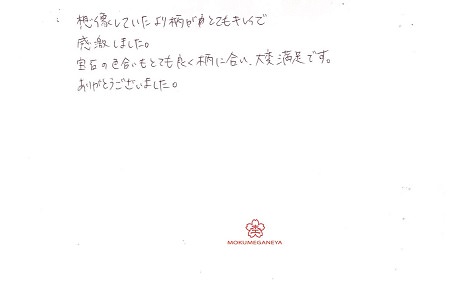 想像していたより柄がとてもキレイで
感激しました。
宝石の色合いもとても良く柄に合い、大変満足です。
ありがとうございました。
MOKUMEGANEYA